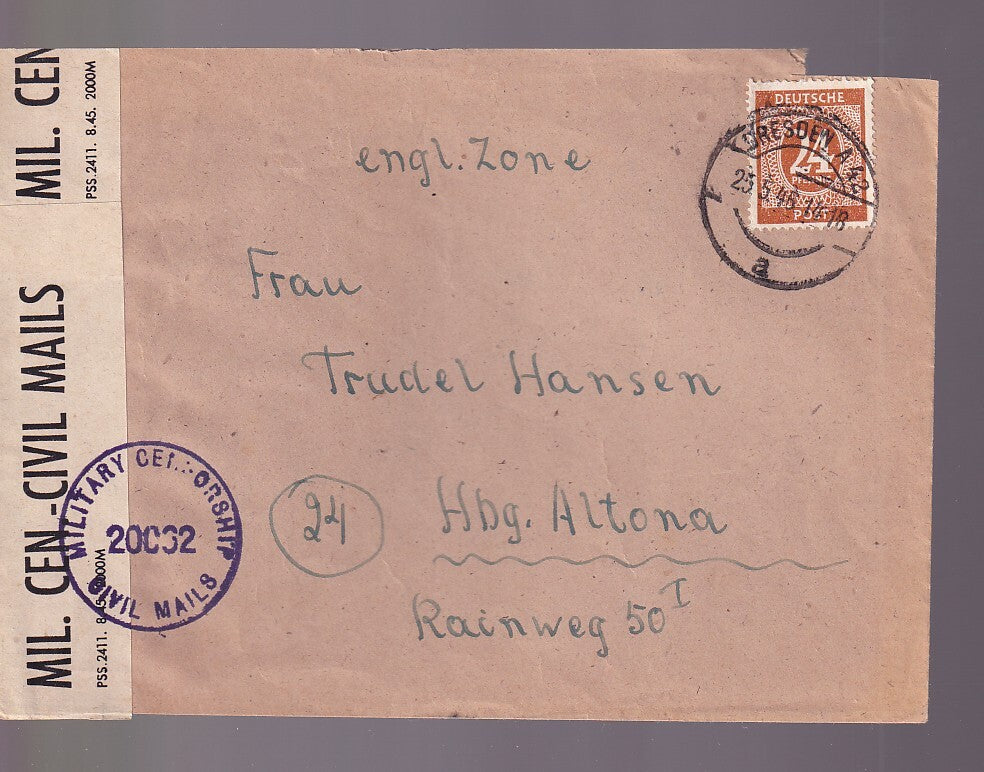 MIL. CEN
PSS.2411. 8.45. 2000M
MIL. CEN-CIVIL MAILS
PSS.2411. 8.45. 2000M
engl. Zone
DEUTSCHE
24
PFENNIG
POST
DRESDEN A
a
Frau
Trudel Hansen
24
Hbg. Altona
Rainweg 50 I
MILITARY CENSORSHIP
CIVIL MAILS